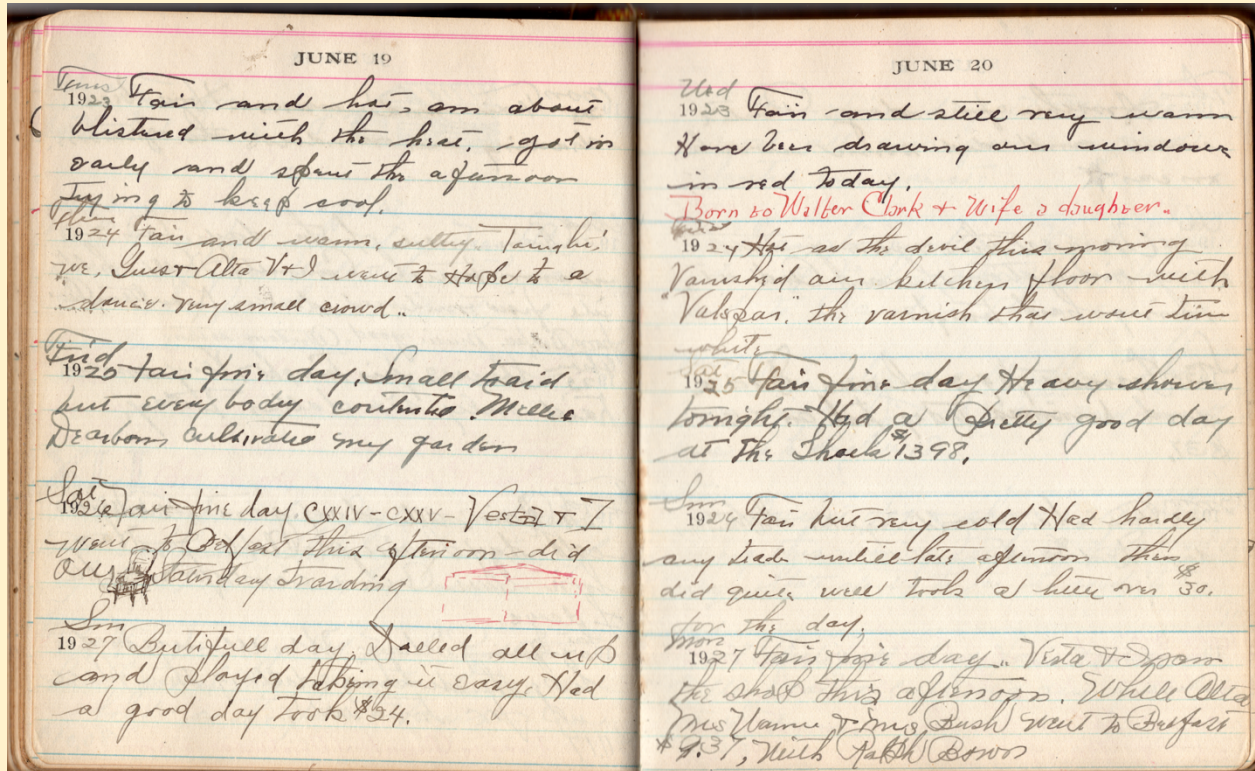 JUNE 19
Tues
1923 Fair and hot, am about
blistured with the heat. got in
early and spent the afternoon
trying to keep cool.
1924 Fair and warm, sultry. Tonight
we, Gus & Alta V & I went to Hope to a
dance. very small crowd..
Frid
1925 Fair fine day, Small traid
but everybody contente. Millie
Dearborn cultivate my garden
Sat
1926 Fair fine day CXXIV - CXXV - Vesta & I
went to Belfast this afternoon - did
our Saturday trarding
Sun
1927 Butifull day, Dolled all up
and played taking it easy. Had
a good day took $24.
JUNE 20
Wed
1923 Fair and still very warm
Have been drawing our windows
in red today.
Born to Walter Clark & Wife a daughter..
1924 Hot as the devil this morning
Varnishjd our kitchen floor with
"Valspar". the varnish that wont turn
white
Sat
1925 Fair fine day Heavy shower
tonight. Had a Pretty good day
at the Shack $1398.
Sun
1926 Fair but very cold Had hardly
any trade untill late afternoon then
did quite well took a little over $30.
for the day.
Mon
1927 Fair fine day.. Vesta & I
the shop this afternoon. While Alta
Mrs & Mrs Bush went to Belfast
$9.37, With Ralph